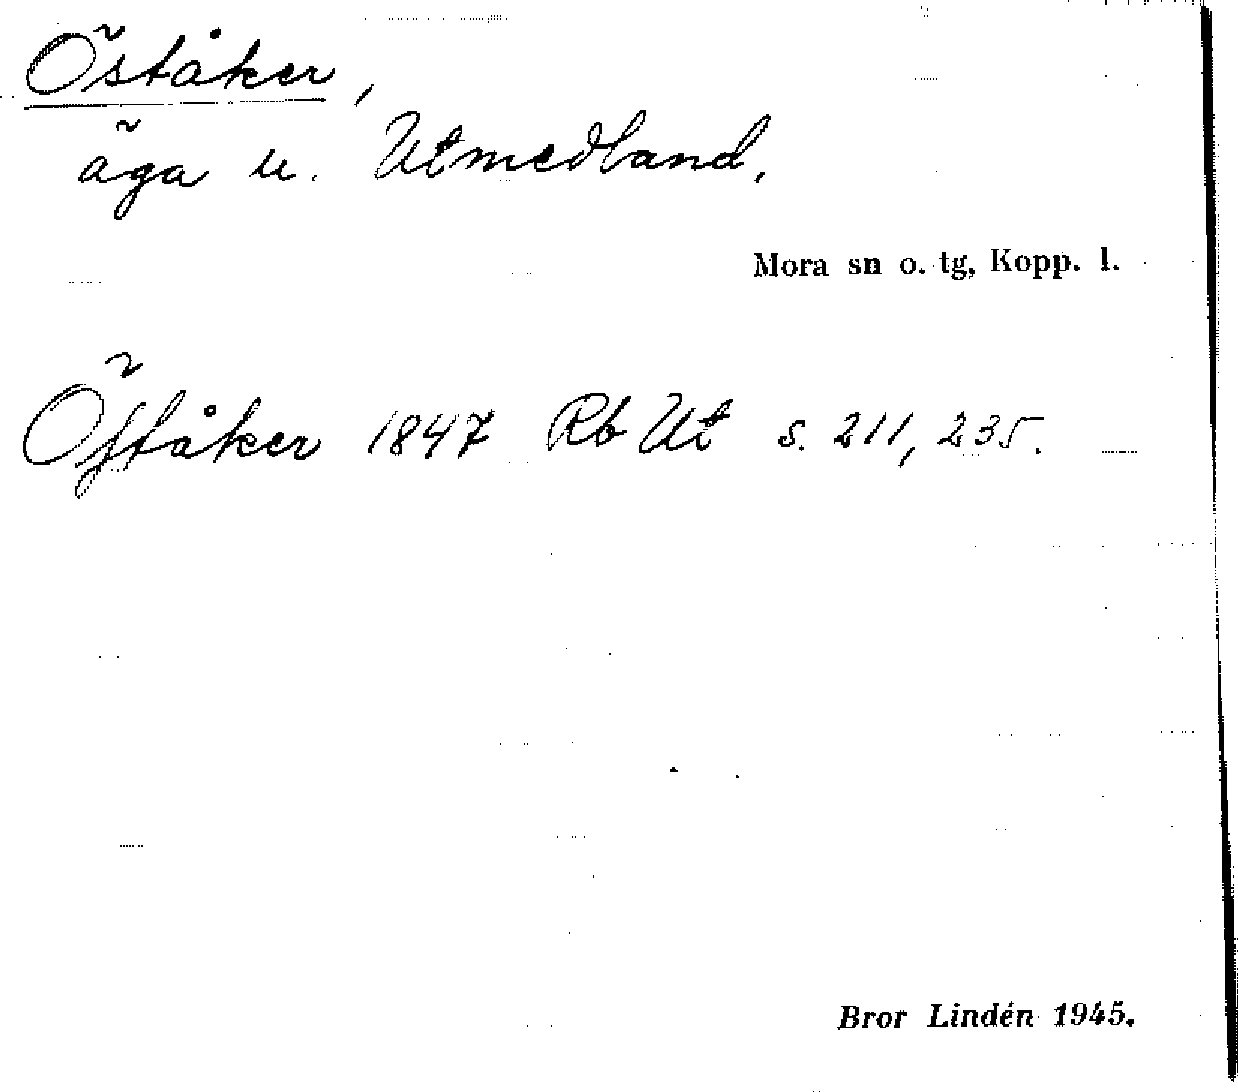 Öståker,
äga u. Utmedland.
Mora sn o. tg, Kopp. l.
Öståker 1847 Rb Ut s. 211, 235.
Bror Lindén 1945.